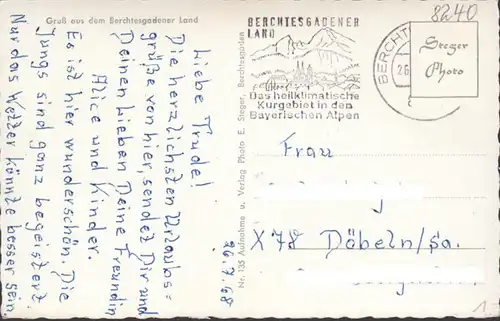 Gruß aus dem Berchtesgadener Land
Liebe Trudel!
Die herzlichsten Urlaubs=
grüße von hier, sendet Dir und
Deinen Lieben Deine Freundin
Alice und Kinder.
Es ist hier wunderschön. Die
Jungs sind ganz begeistert.
Nur das Wetter könnte besser sein.
26.7.68
Nr. 135 Aufnahme u. Verlag Photo E. Steger, Berchtesgaden
BERCHTESGADENER
LAND
Das heilklimatische
Kurgebiet in den
Bayerischen Alpen
BERCHT
26.
8240
Steger
Photo
Frau
X 78 Döbeln/Sa.
1